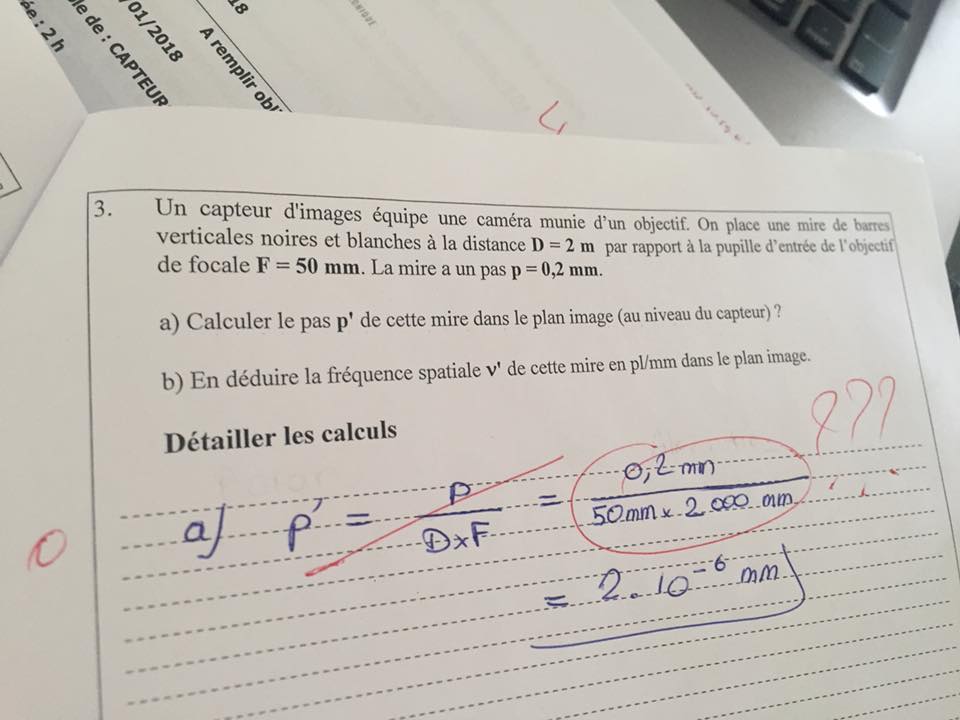 18
/01/2018
ée : 2 h
le de : CAPTEUR
A remplir obli
3. Un capteur d'images équipe une caméra munie d'un objectif. On place une mire de barres
verticales noires et blanches à la distance D = 2 m par rapport à la pupille d'entrée de l'objectif
de focale F = 50 mm. La mire a un pas p = 0,2 mm.
a) Calculer le pas p' de cette mire dans le plan image (au niveau du capteur) ?
b) En déduire la fréquence spatiale ν' de cette mire en pl/mm dans le plan image.
Détailler les calculs
???
a) p' = P / D×F = 0,2 mm / 50mm × 2 000 mm
0
= 2.10⁻⁶ mm